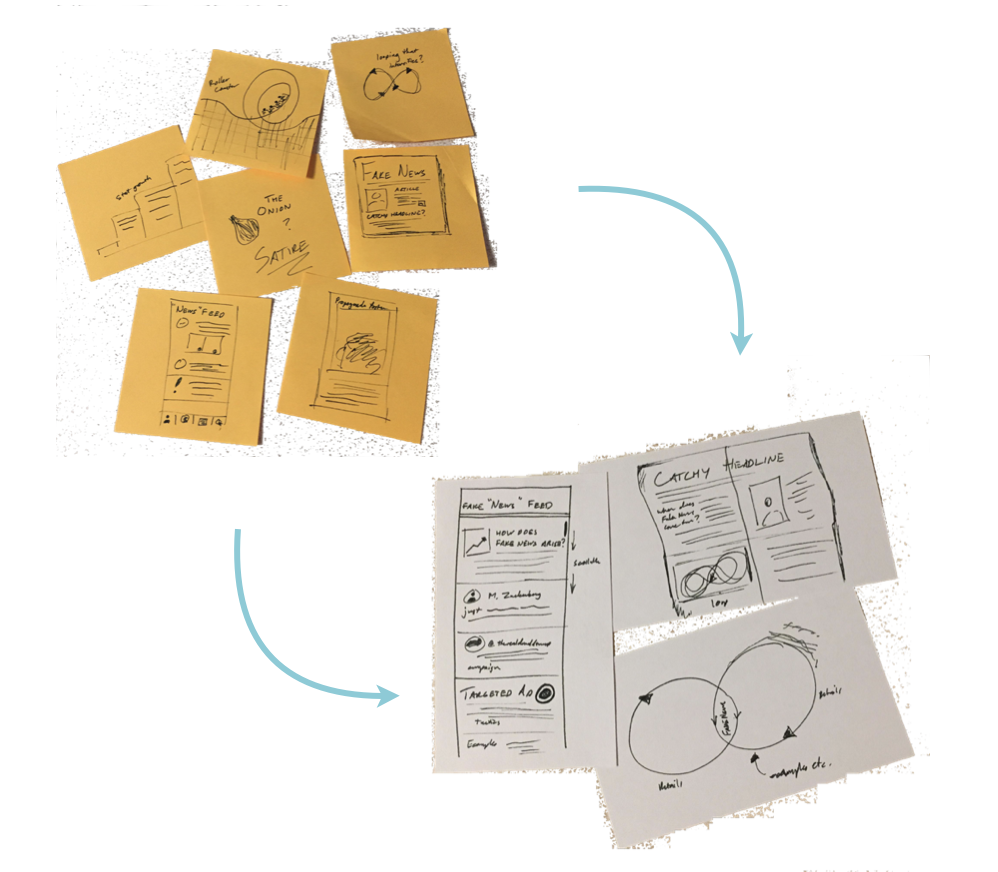 Roller
Coaster
looping that
THE
ONION
?
SATIRE
FAKE NEWS
ARTICLE
CATCHY HEADLINE?
"NEWS" FEED
Propaganda Poster
FAKE "NEWS" FEED
HOW DOES
FAKE NEWS ARISE?
M. Zuckerberg
just
TARGETED AD
Tactics
Examples
CATCHY HEADLINE
where does
Fake News
come from?
loop
Fake News
details
details
examples etc.